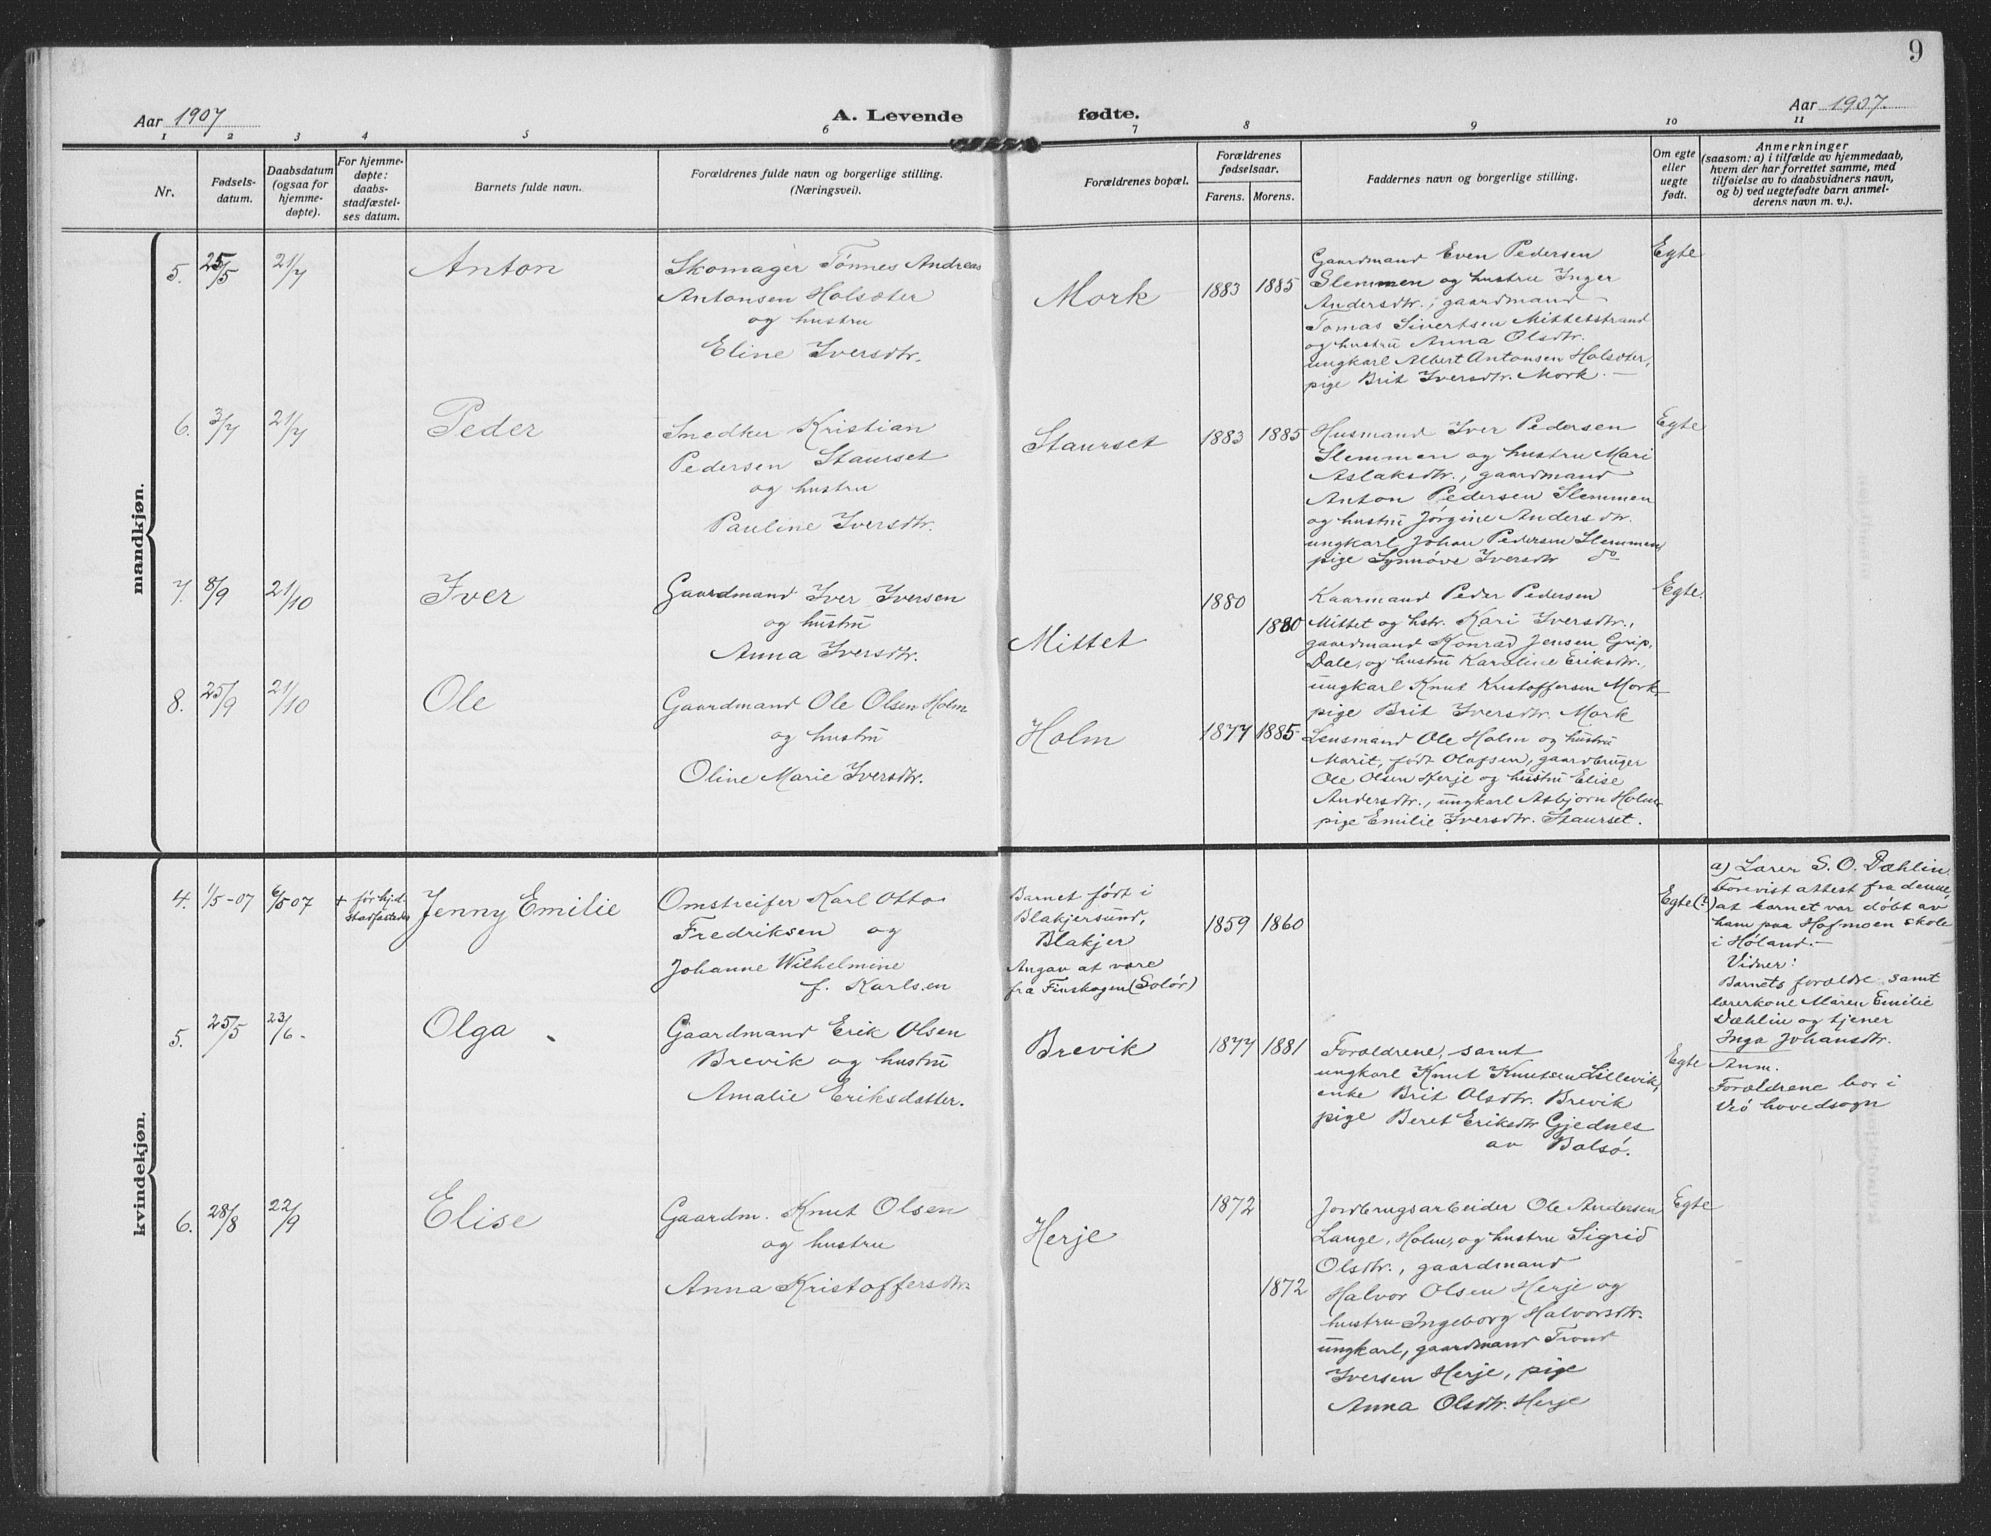 9
Aar 1907
A. Levende
fødte.
Aar 1907.
1 2 3 4 5 6 7 8 9 10 11
Nr.
Fødsels-
datum.
Daabsdatum
(ogsaa for
hjemme-
døpte).
For hjemme-
døpte:
daabs-
stadfæstel-
ses datum.
Barnets fulde navn.
Forældrenes fulde navn og borgerlige stilling.
(Næringsvei).
Forældrenes bopæl.
Forældrenes
fødselsaar.
Farens. Morens.
Faddernes navn og borgerlige stilling.
Om egte
eller
uegte
født.
Anmerkninger
(saasom: a) i tilfælde av hjemmedaab,
hvem der har forrettet samme, med
tilføielse av to daabsvidners navn,
og b) ved uegtefødte barn anmel-
derens navn m. v.).
mandkjøn.
5. 25/5 21/7 Anton
Skomager Tønnes Andreas
Antonsen Holsæter
og hustru
Eline Iversdtr.
Mork 1883 1885
Gaardmand Even Pedersen
Slemmen og hustru Inger
Andersdtr., gaardmand
Tomas Sivertsen Mittetstrand
og hustru Anna Olsdtr.
ungkarl Albert Antonsen Holsæter,
pige Brit Iversdtr. Mork. —
Egte
6. 3/7 21/7 Peder
Snedker Kristian
Pedersen Staurset
og hustru
Pauline Iversdtr.
Staurset 1883 1885
Husmand Iver Pedersen
Slemmen og hustru Mari
Aslaksdtr., gaardmand
Anton Pedersen Slemmen
og hustru Jørgine Andersdtr.
ungkarl Johan Pedersen Slemmen,
pige Synnøve Iversdtr do
Egte
7. 8/9 21/10 Iver
Gaardmand Iver Iversen
og hustru
Anna Iversdtr.
Mittet 1880 1880
Kaarmand Peder Pedersen
Mittet og hstr. Kari Iversdtr.,
gaardmand Konrad Jensen Grip,
Dale, og hustru Karoline Eriksdtr.,
ungkarl Knut Kristoffersen Mork
pige Brit Iversdtr. Mork
Egte.
8. 25/9 21/10 Ole
Gaardmand Ole Olsen Holm
og hustru
Oline Marie Iversdtr.
Holm 1877 1885
Lensmand Ole Holm og hustru
Marit, født Olafsen, gaardbruger
Ole Olsen Herje og hustru Elise
Andersdtr., ungkarl Asbjørn Holm,
pige Emilie Iversdtr. Staurset.
kvindekjøn.
4. 1/5-07 6/5 07 + før hjd.
stadfæstedes
Jenny Emilie
Omstreifer Karl Otto
Fredriksen og
Johanne Wilhelmine
f. Karlsen
Barnet født i
Blakjersund,
Blakjer
Angav at være
fra Finskogen (Solør)
1859 1860
Egte(?)
a) Lærer S. O. Dæhlin.
Forevist attest fra denne,
at barnet var døbt av
ham paa Hofmoen skole
i Høland. —
Vidner:
Barnets forældre samt
lærerkone Maren Emilie
Dæhlin og tjener
Inga Johansdtr.
5. 25/5 23/6. Olga
Gaardmand Erik Olsen
Brevik og hustru
Amalie Eriksdatter.
Brevik 1877 1881
Forældrene, samt
ungkarl Knut Knutsen Lillevik,
enke Brit Olsdtr. Brevik
pige Beret Eriksdtr Gjednes
av Bolsø.
Egte
Anm.
Forældrene bor i
Veø hovedsogn
6. 28/8 22/9 Elise
Gaardm. Knut Olsen
og hustru
Anna Kristoffersdtr.
Herje 1872 1872
Jordbrugsarbeider Ole Andersen
Lange, Holm, og hustru Sigrid
Olsdtr., gaardmand
Halvor Olsen Herje og
hustru Ingeborg Halvorsdtr.
ungkarl, gaardmand Trond
Iversen Herje, pige
Anna Olsdtr. Herje
Egte